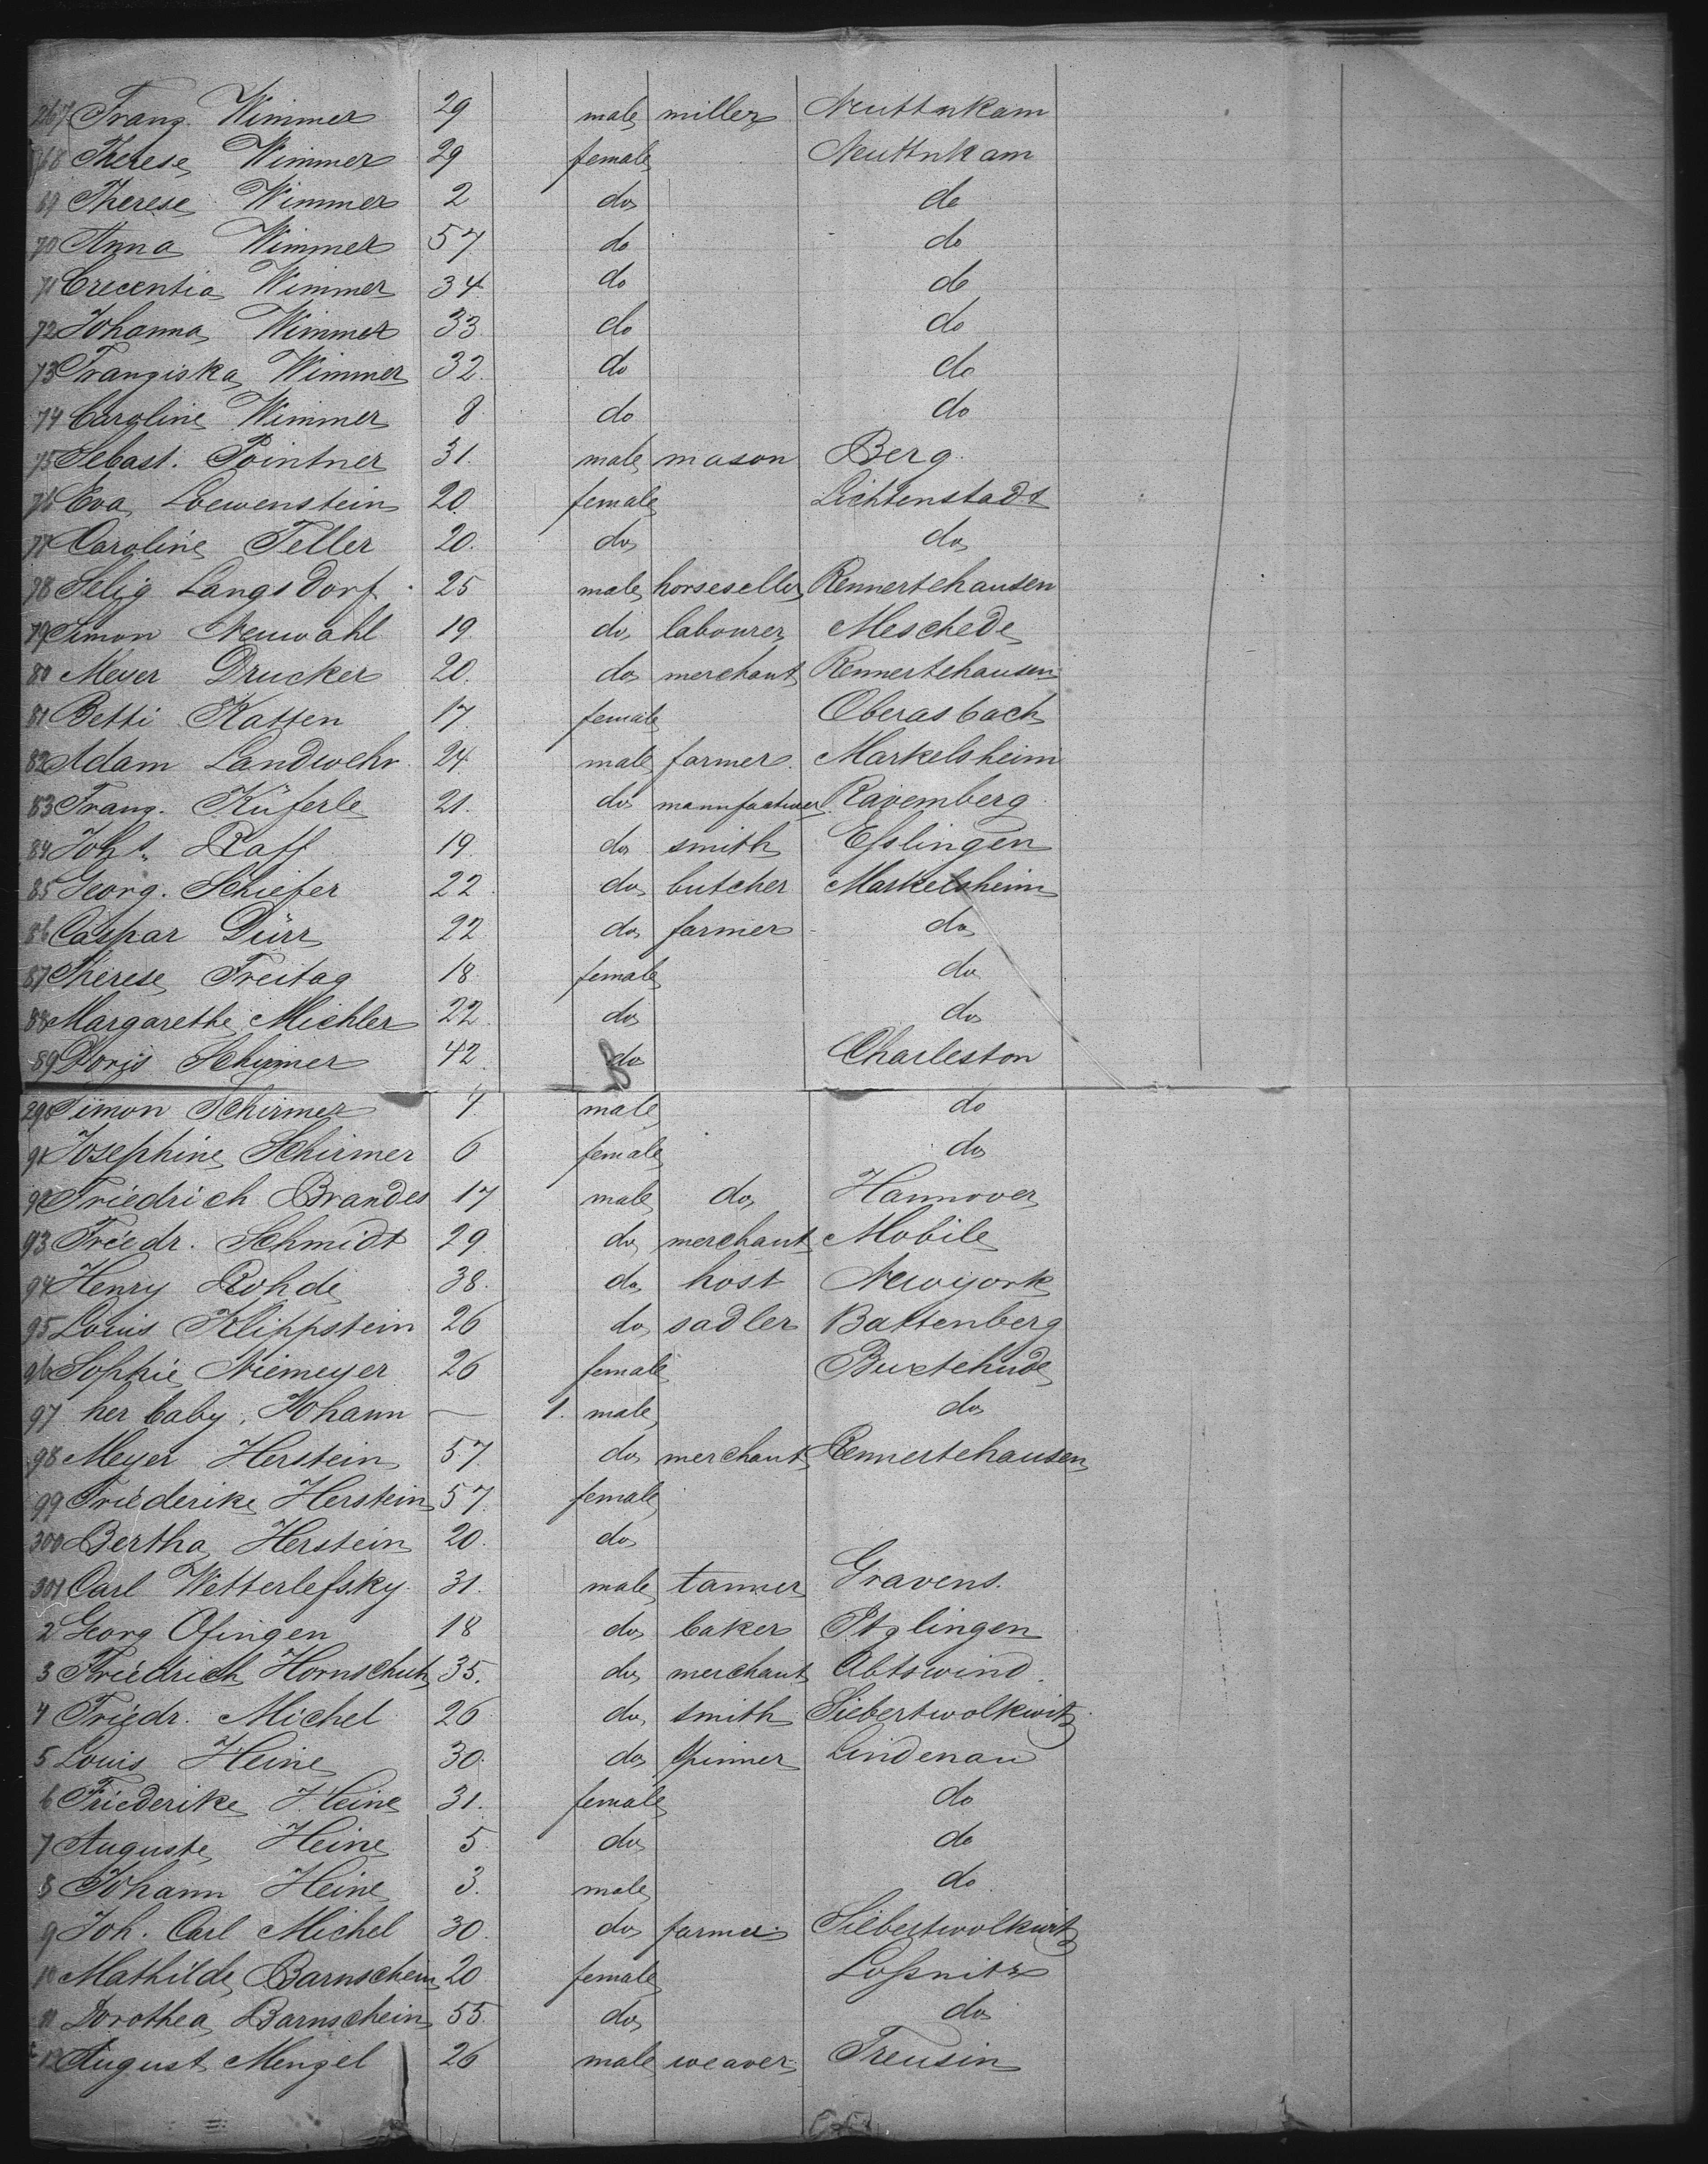 267 Franz Wimmer 29 male miller Neuttnkam
68 Therese Wimmer 29 female Neuttnkam
69 Therese Wimmer 2 do do
70 Anna Wimmer 57 do do
71 Crecentia Wimmer 34 do do
72 Johanna Wimmer 33 do do
73 Franziska Wimmer 32 do do
74 Caroline Wimmer 8 do do
75 Sebast. Pointner 31. male mason Berg
76 Eva Loewenstein 20. female Lichtenstadt
77 Caroline Teller 20. do do
78 Selig Langsdorf 25 male horseseller Rennertehausen
79 Simon Neuwahl 19 do labourer Meschede
80 Meyer Drucker 20. do merchant Rennertehausen
81 Betti Katten 17 female Oberasbach
82 Adam Landwehr 24. male farmer Markelsheim
83 Franz. Küferle 21. do manufacturer Ravemberg
84 Johs. Raff 19 do smith Esslingen
85 Georg. Schiefer 22 do butcher Markelsheim
86 Caspar Dürr 22 do farmer do
87 Therese Freitag 18 female do
88 Margarethe Michler 22. do do
89 Doris Schirmer 42 do Charleston
290 Simon Schirmer 7 male do
91 Josephine Schirmer 6 female do
92 Friedrich Brandes 17 male do Hannover
93 Friedr. Schmidt 29 do merchant Mobile
94 Henry Rohde 38. do host Newyork
95 Louis Klippstein 26 do sadler Battenberg
96 Sophie Niemeyer 26 female Buxtehude
97 her baby, Johann — 1. male do
98 Meyer Herstein 57. do merchant Rennertehausen
99 Friederike Herstein 57. female
300 Bertha Herstein 20. do
301 Carl Wetterlefsky 31. male tanner Gravens.
2 Georg Ofingen 18 do baker
3 Friedrich Hornschuh 35. do merchant Abtswind
4 Friedr. Michel 26 do smith Siebertwolkwitz
5 Louis Heine 30. do spinner Lindenau
6 Friederike Heine 31. female do
7 Auguste Heine 5. do do
8 Johann Heine 3. male do
9 Joh. Carl Michel 30 do farmer Siebertwolkwitz
10 Mathilde Barnschein 20 female Loßnitz
11 Dorothea Barnschein 55. do do
12 August Mengel 26 male weaver Treusin